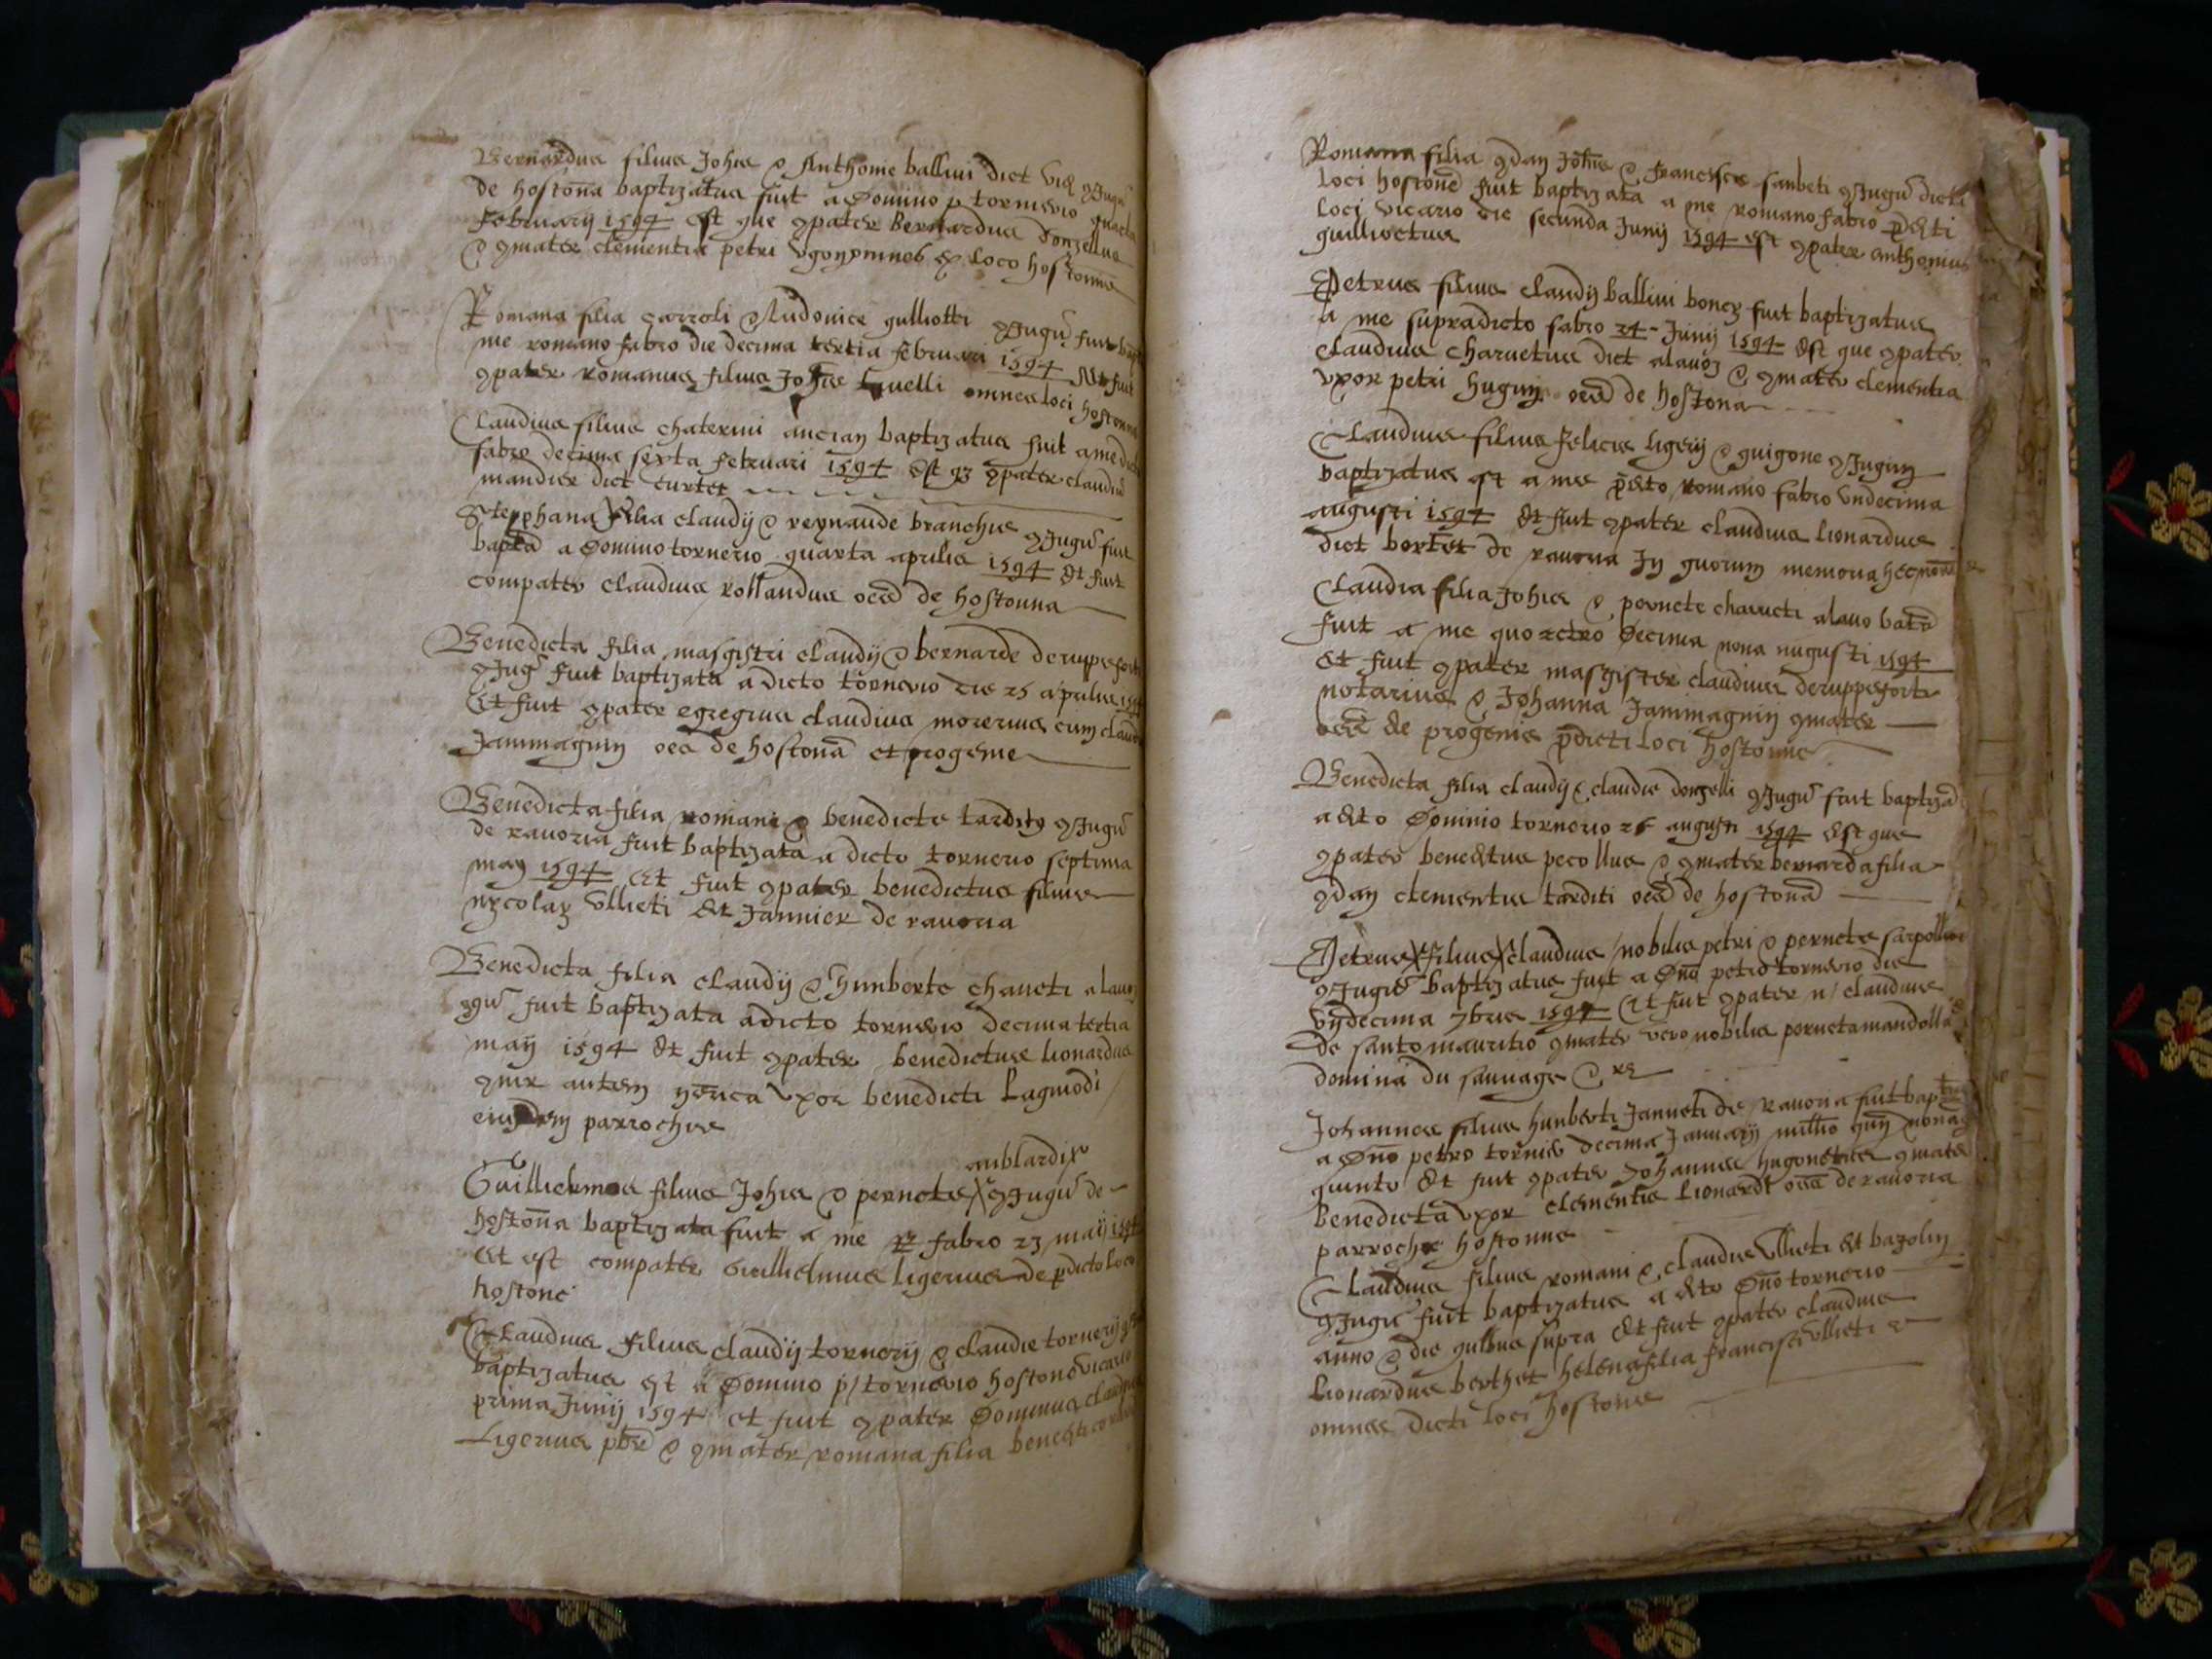 Bernardus filius Johis & Anthonie ballini dict vid
de hostona baptizatus fuit a Domino p tornerio quarta
februarij 1594 est que 9pater Bernardus Donzellus
& 9mater clementia petri Ugonj omnes ex loco hostonne
Romana filia Carroli & Ludovice gulliotti 9Jugu fuit
me romano fabro die decima tertia februari 1594 Et fuit
9pater Romanus filius Johis omnes loci hostonne
Claudius filius chaterini ancian baptizatus fuit a me dicto
fabro decima sexta februari 1594 Est q3 9pater claudius
mandier dict curtet
Stepphana filia claudij & reynaude branchie 9Jugu fuit
bapta a Domino tornerio quarta aprilis 1594 Et fuit
compater claudius rollandus oes de hostonna
Benedicta filia magistri claudij & bernarde deruppeforti
9Jug fuit baptizata a dicto tornerio die 25 aprilis 1594
Et fuit 9pater egregius claudius morerius cum claud
Jammagnin oes de hostona et progenie
Benedicta filia romani & benedicte tardity 9Jugu
de ravoria fuit baptizata a dicto tornerio septima
may 1594 Et fuit 9pater benedictus filius
nycolay Ullieti Et Jannier de ravoria
Benedicta filia claudij & humberte chaveti alavoz
9gu fuit baptizata a dicto tornerio decima tertia
maij 1594 Et fuit 9pater benedictus lionardus
9mr autem uxor benedicti Lagniodi
eiusdem parrochie
aublardix
Guillielmus filius Johis & pernete 9Jugu de
hostona baptizata fuit a me R fabro 23 maij 1594
Et est compater Guillielmus Ligerius de pdicto loco
hostone
Claudius filius claudij tornerij & claudie tornerij
baptizatus est a Domino p/ tornerio hostone vicario
prima Junij 1594 et fuit 9pater Dominus claudius
Ligerius pbr & 9mater romana filia benedicti
Romana filia 9dam Johis & francisce sanbeti 9Jugu dicti
loci hostone fuit baptizata a me romano fabro pdicti
loci vicario die secunda Junij 1594 est 9pater anthonius
guilliotus
Petrus filius claudij ballini boney fuit baptizatus
a me supradicto fabro 24 Junij 1594 Est que 9pater
claudius charvetus dict alavoz & 9mater clementia
uxor petri hugonj oes de hostona
Claudius filius felicis ligerij & guigone 9Jugum
baptizatus est a me pdicto romano fabro undecima
augusti 1594 Et fuit 9pater claudius lionardus
dict bertet de ravoria In quorum memoria hec
Claudia filia Johis & pernete charveti alavo bata
fuit a me quo retro decima nona augusti 1594
Et fuit 9pater magister claudius deruppeforti
notarius & Johanna Jammagnin 9mater
oes de progenie pdicti loci hostonne
Benedicta filia claudij & claudie donzelli 9Jugu fuit baptizata
a dicto Domino tornerio 26 augusti 1594 Est que
9pater benedictus pecollus & 9mater bernarda filia
9dam clementis tarditi oes de hostona
Petrus filius claudius nobilis petri & pernete
9Jugu baptizatus fuit a Dno petro tornerio die
undecima 7bris 1594 Et fuit 9pater n/ claudius
de santo mauritio 9mater vero nobilis perneta mandolla
domina du sauvage &
Johannes filius humberti Janneti de ravoria fuit bap
a Dno petro tornerio decima Januarij millio quin nonag
quinto Et fuit 9pater Johannes hugonetus 9mater
Benedicta uxor clementis lionardi oes de ravoria
parrochie hostonne
Claudius filius romani & claudie Ullieti Et bazolin
9Jugu fuit baptizatus a dicto Dno tornerio
anno & die quibus supra Et fuit 9pater claudius
lionardus berthet helena filia francisci Ullieti
omnes dicti loci hostonne